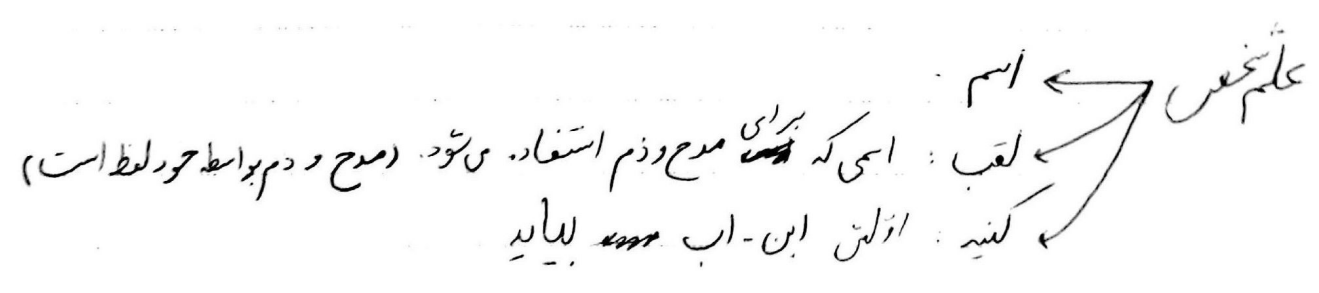 علم شخص
اسم
لقب : اسمی که برای مدح و ذم استفاده می‌شود. (مدح و ذم بواسطه خود لفظ است)
کنیه : اولش ابن - اب بیاید